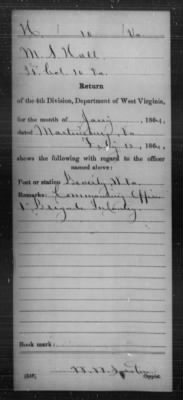 H. 10 Va
M. S. Hall
Lt Col 10 Va.
Return
of the 4th Division, Department of West Virginia,
for the month of Jany, 1864,
dated Martinsburg, Va
Feby 12, 1864,
shows the following with regard to the officer
named above:
Post or station Beverly W. Va.
Remarks: Commanding Officer
1st Brigade Infantry
Book mark:
Copyist.